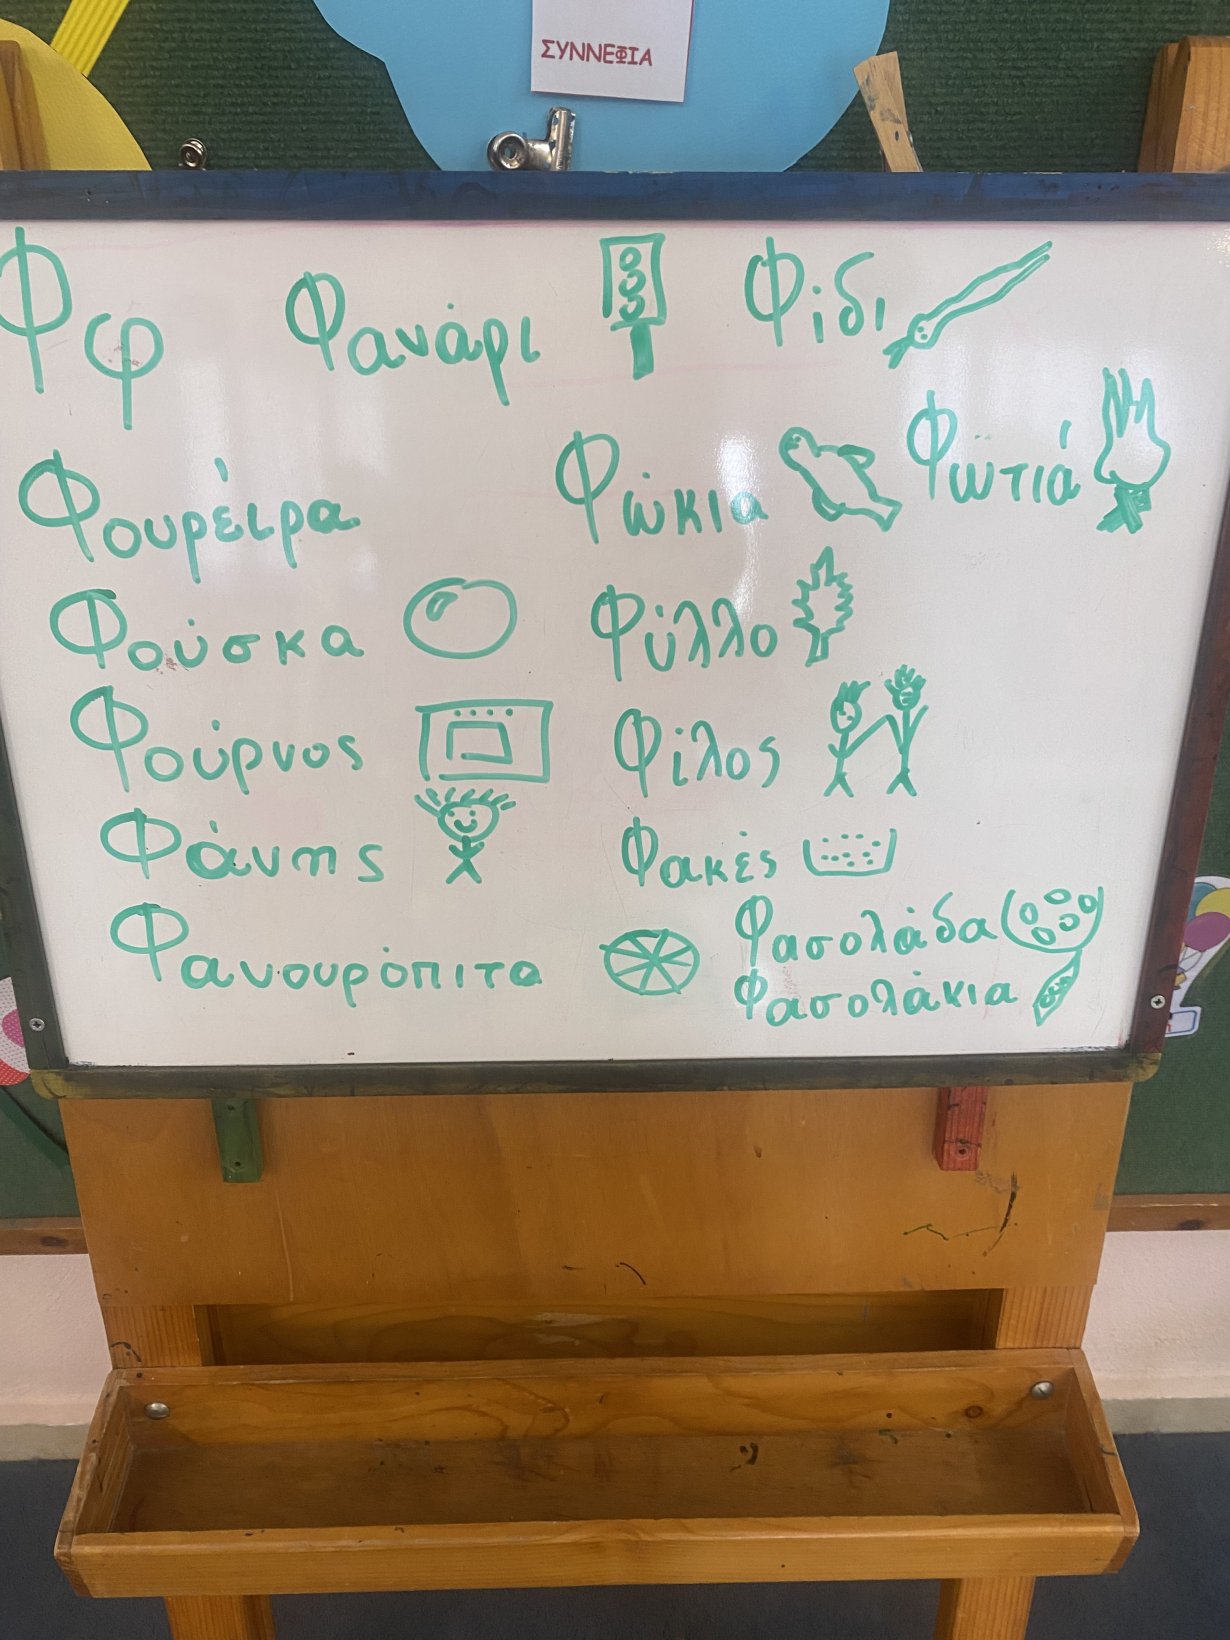 ΣΥΝΝΕΦΙΑ
Φ φ Φανάρι Φίδι
Φωτιά
Φουρέιρα Φώκια
Φούσκα Φύλλο
Φούρνος Φίλος
Φάνης Φακές
Φανουρόπιτα Φασολάδα
Φασολάκια